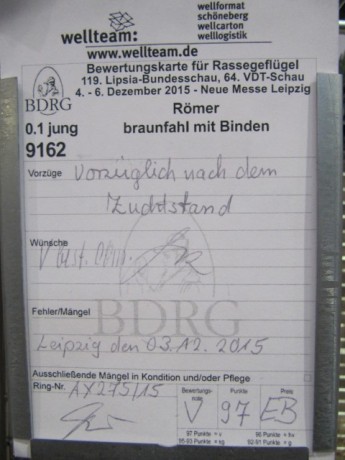 wellteam:
wellformat
schöneberg
wellcarton
welllogistik
www.wellteam.de
Bewertungskarte für Rassegeflügel
119. Lipsia-Bundesschau, 64. VDT-Schau
4. - 6. Dezember 2015 - Neue Messe Leipzig
BDRG
Römer
0.1 jung
braunfahl mit Binden
9162
Vorzüge Vorzüglich nach dem
Zuchtstand
Wünsche
V best.
BDRG
Fehler/Mängel
Leipzig den 03.12.2015
Ausschließende Mängel in Kondition und/oder Pflege
Ring-Nr. AX275/15
Bewertungs-
note
Punkte
Preis
V 97 EB
97 Punkte = v
96 Punkte = hv